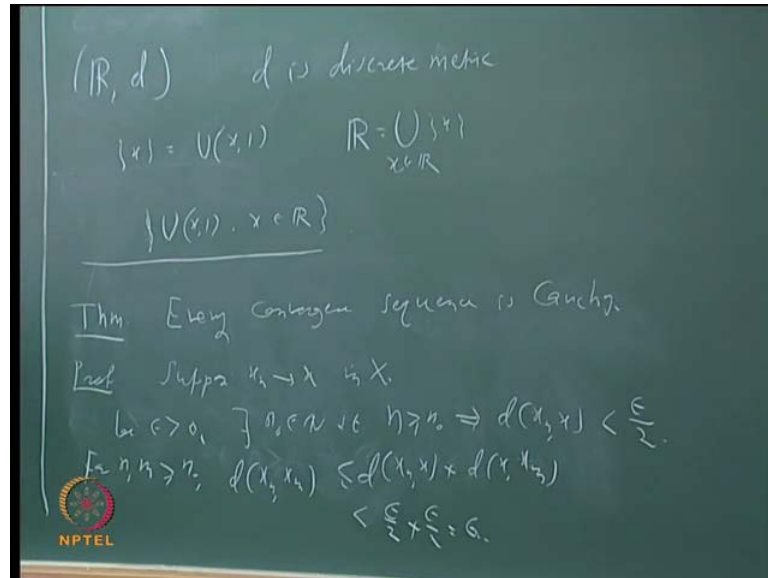 (ℝ, d) d is discrete metric
{x} = U(x,1) ℝ = ⋃ {x}
x∈ℝ
{U(x,1) . x ∈ ℝ}
Thm. Every convergen sequence is Cauchy.
Proof Suppose xₙ → x in X.
Let ε > 0, ∃ n₀ ∈ ℕ st n ≥ n₀ ⇒ d(xₙ, x) < ε/2.
For n, m ≥ n₀, d(xₙ, xₘ) ≤ d(xₙ, x) + d(x, xₘ)
< ε/2 + ε/2 = ε.
NPTEL